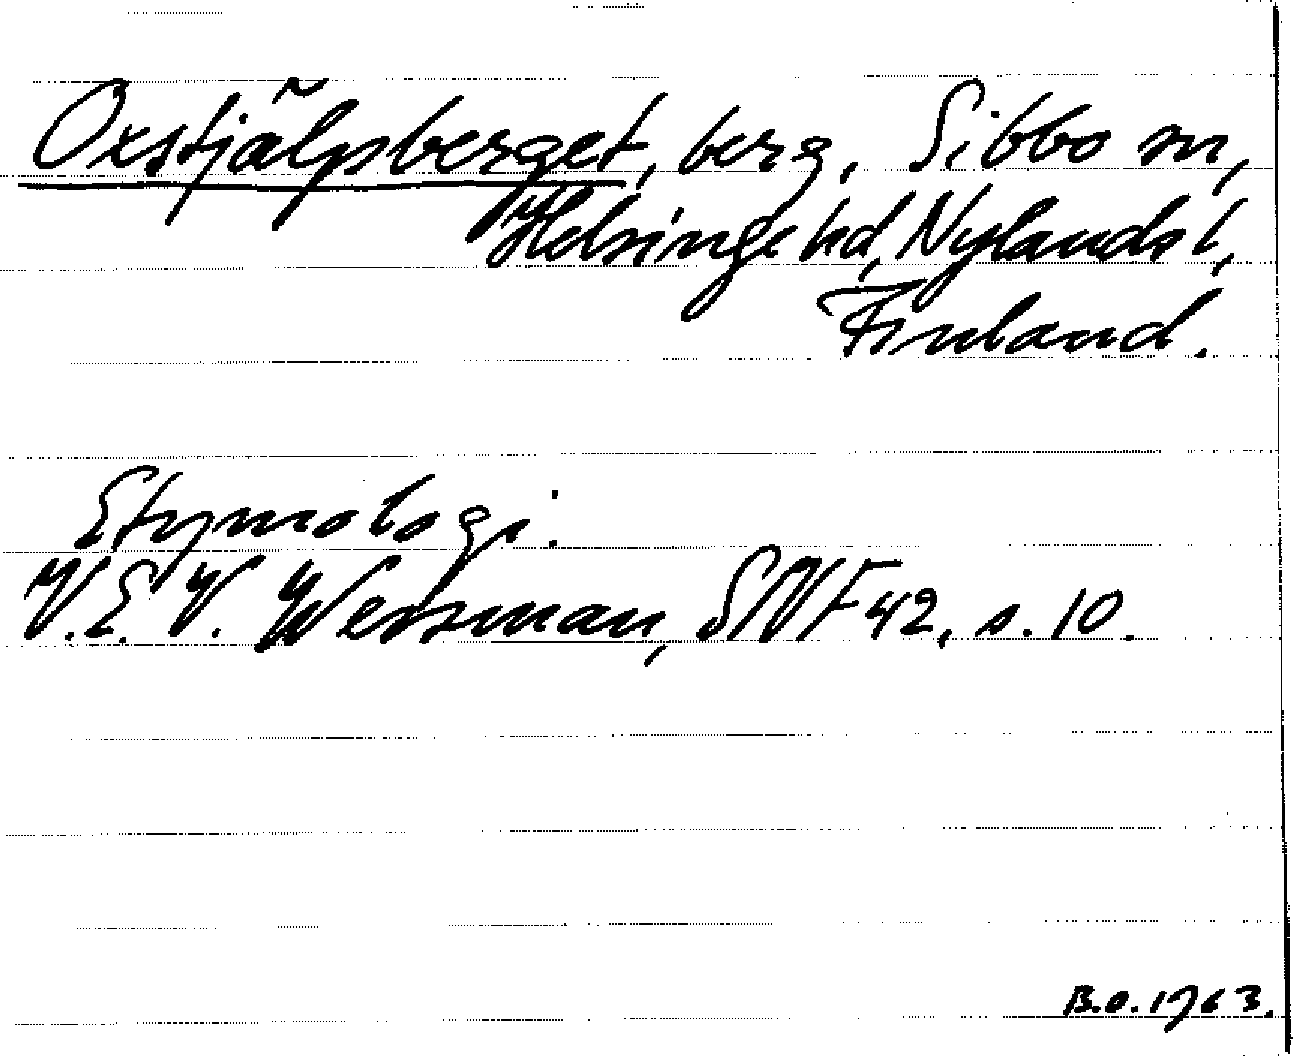 Oxstjälpsberget, berg, Sibbo sn,
Helsinge hd, Nylands l,
Finland.
Etymologi:
V.E.V. Wessman, SNF 42, s. 10.
B.O. 1963.